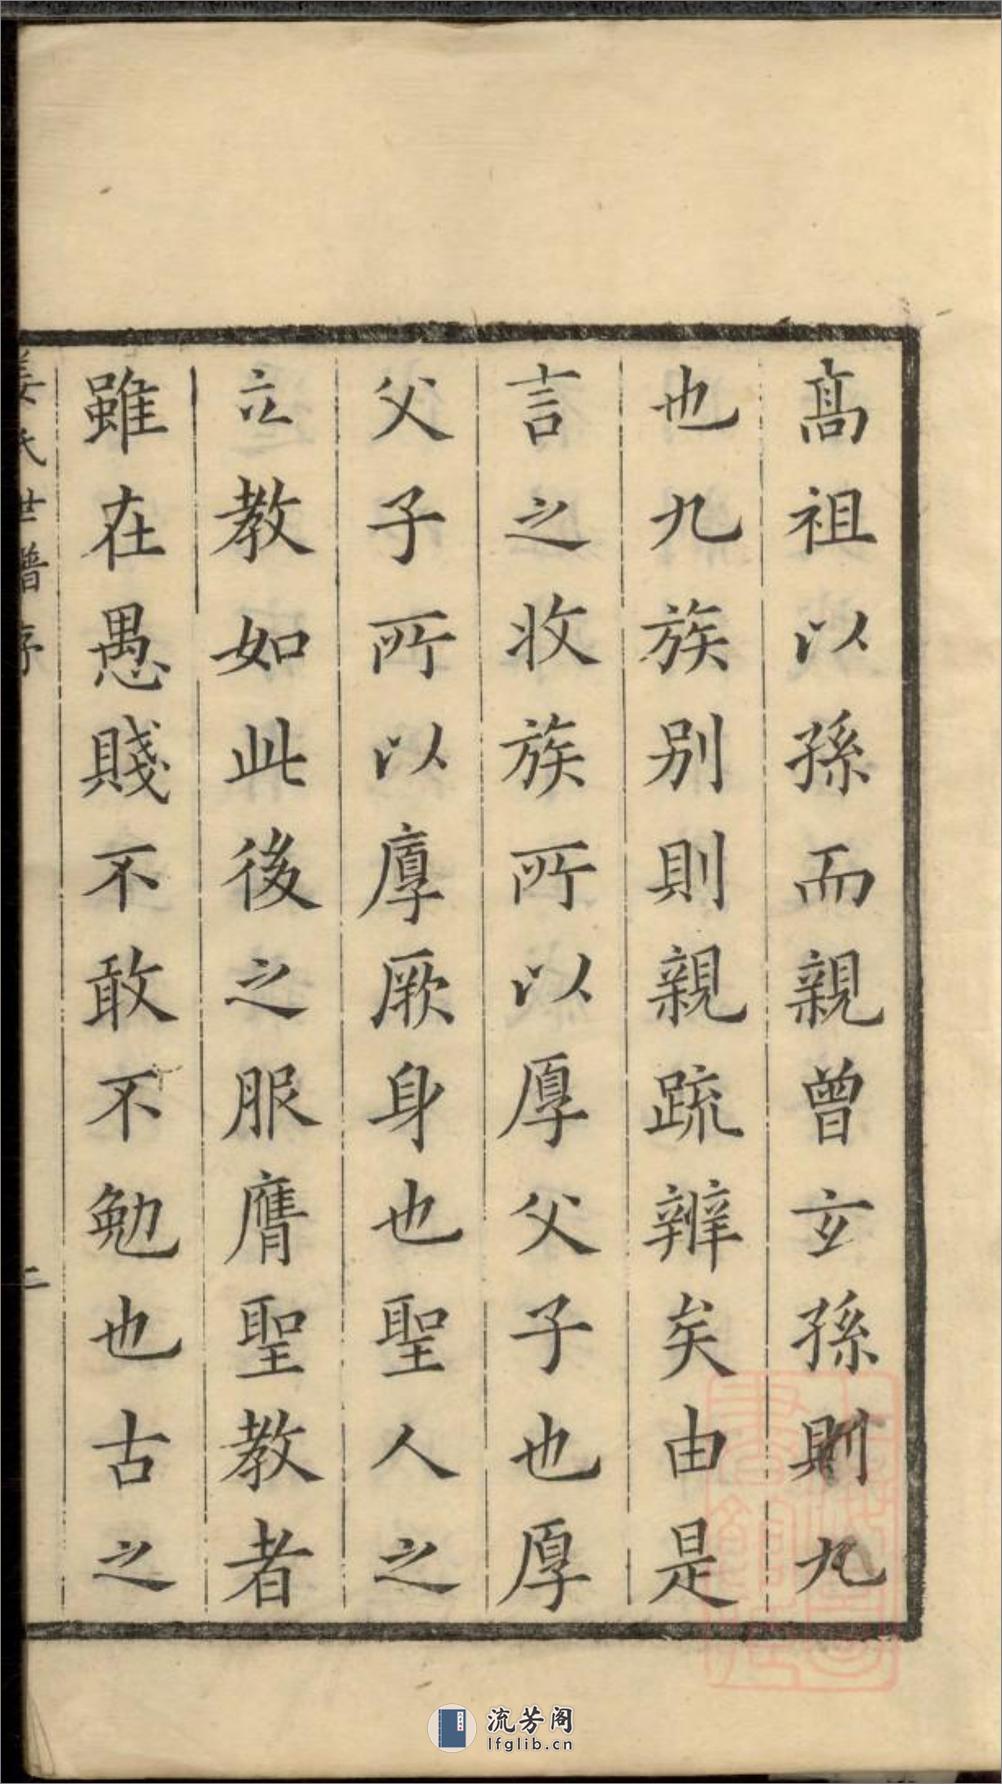 髙祖以孫而親曾玄孫則九
也九族别則親疏辨矣由是
言之收族所以厚父子也厚
父子所以厚厥身也聖人之
立教如此後之服膺聖教者
雖在愚賤不敢不勉也古之
姜氏世譜序
二
流芳阁
lfglib.cn